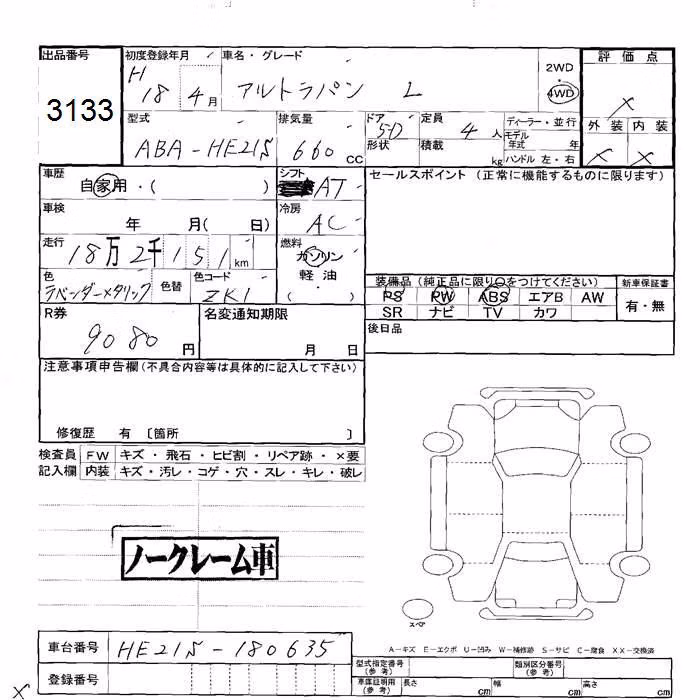 出品番号 初度登録年月 車名・グレード 2WD・4WD 評価点
3133 H 18 4月 アルトラパン L X
型式 排気量 ドア 形状 定員 積載 ディーラー・並行 外装 内装
ABA-HE21S 660cc 5D 4人 kg モデル年式 年 ハンドル 左・右 X X
車歴 自家用・( ) シフト AT セールスポイント (正常に機能するものに限ります)
車検 年 月( 日) 冷房 AC
走行 18万2千151km 燃料 ガソリン 軽油・( )
色 ラベンダーメタリック 色替 色コード ZK1 装備品(純正品に限り○をつけてください) 新車保証書
PS PW ABS エアB AW 有・無
SR ナビ TV カワ
R券 9080円 名変通知期限 月 日 後日品
注意事項申告欄(不具合内容等は具体的に記入して下さい)
修復歴 有 〔箇所 〕
検査員 FW キズ・飛石・ヒビ割・リペア跡・×要
記入欄 内装 キズ・汚レ・コゲ・穴・スレ・キレ・破レ
ノークレーム車
スペア
A-キズ E-エクボ U-凹み W-補修跡 S-サビ C-腐食 XX-交換済
車台番号 HE21S-180635 型式指定番号(参考) 類別区分番号(参考)
登録番号 車庫証明用(参考) 長さ cm 幅 cm 高さ cm
X